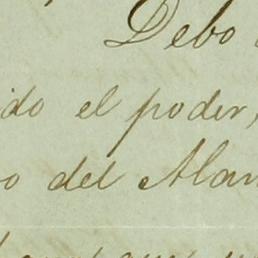 Debo
ido el poder,
o del Alam